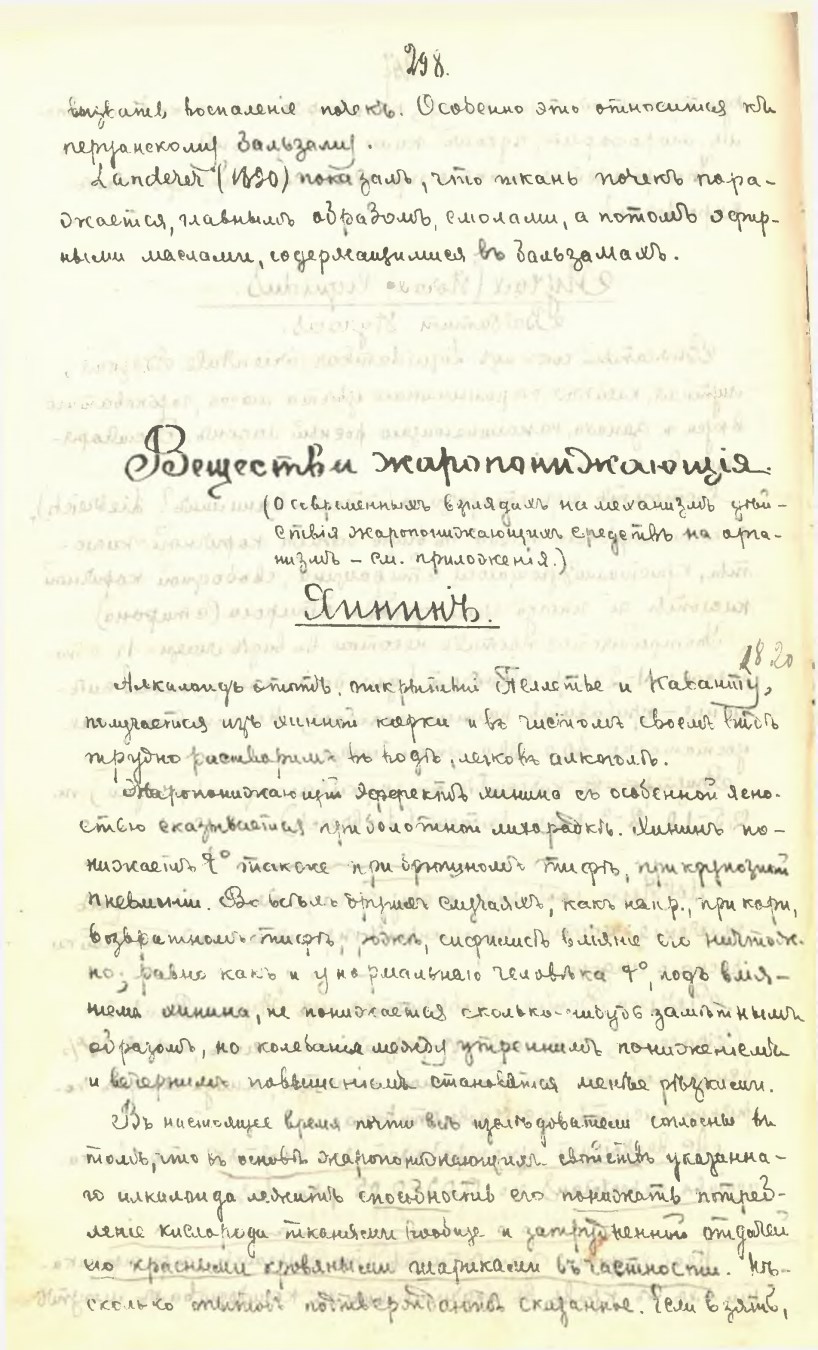 298.
вызвать воспаленіе почекъ. Особенно это относится къ
перуанскому бальзаму.
Landerer (1890) показалъ, что ткань почекъ пора-
жается, главнымъ образомъ, смолами, а потомъ эфир-
ными маслами, содержащимися въ бальзамахъ.
Вещества жаропонижающія.
(О современныхъ взглядахъ на механизмъ дѣй-
ствія жаропонижающихъ средствъ на орга-
низмъ – см. приложенія.)
Хининъ.
1820
Алкалоидъ этотъ, открытый Пеллетье и Каванту,
получается изъ хинной корки и въ чистомъ своемъ видѣ
трудно растворимъ въ водѣ, легко въ алкоголѣ.
Жаропонижающій эффектъ хинина съ особенной ясно-
стью сказывается при болотной лихорадкѣ. Хининъ по-
нижаетъ t° также при брюшномъ тифѣ, при крупозной
пневмоніи. Во всѣхъ другихъ случаяхъ, какъ напр., при кори,
возвратномъ тифѣ, рожѣ, сифилисѣ вліяніе его ничтож-
но; равно какъ и у нормальнаго человѣка t°, подъ влія-
ніемъ хинина, не понижается сколько-нибудь замѣтнымъ
образомъ, но колебанія между утреннимъ пониженіемъ
и вечернимъ повышеніемъ становятся менѣе рѣзкими.
Въ настоящее время почти всѣ изслѣдователи согласны въ
томъ, что въ основѣ жаропонижающихъ свойствъ указанна-
го алкалоида лежитъ способность его понижать потреб-
леніе кислорода тканями вообще и затрудненной отдачей
его красными кровяными шариками въ частности. Нѣ-
сколько опытовъ подтверждаютъ сказанное. Если взять,